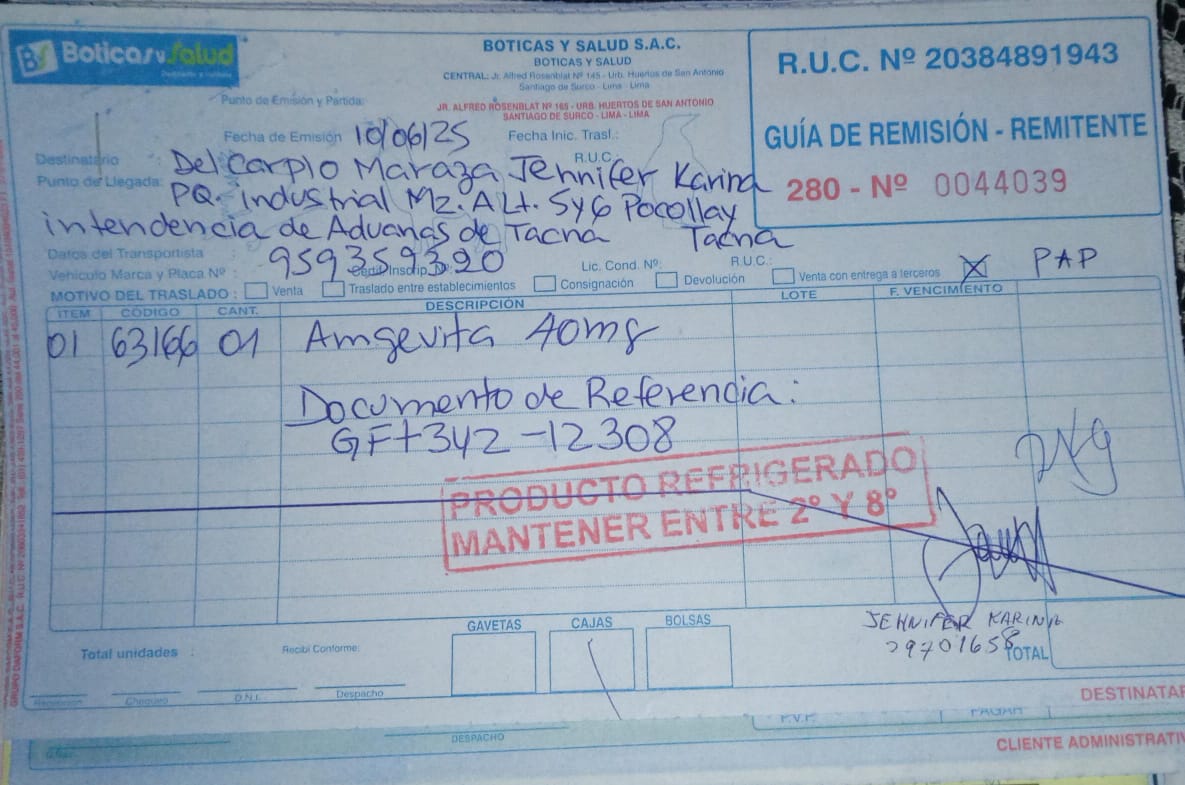 BS Boticas y Salud
BOTICAS Y SALUD S.A.C.
BOTICAS Y SALUD
CENTRAL: Jr. Alfred Rosenblat Nº 145 - Urb. Huertos de San Antonio
Santiago de Surco - Lima - Lima
R.U.C. Nº 20384891943
GUÍA DE REMISIÓN - REMITENTE
280 - Nº 0044039
Punto de Emisión y Partida:
JR. ALFRED ROSENBLAT Nº 165 - URB. HUERTOS DE SAN ANTONIO
SANTIAGO DE SURCO - LIMA - LIMA
Fecha de Emisión 10/06/25 Fecha Inic. Trasl.:
Destinatario : Del Carpio Maraza Jennifer Karina R.U.C.:
Punto de Llegada: PQ. industrial Mz. A Lt. 5 y 6 Pocollay
intendencia de Aduanas de Tacna Tacna
Datos del Transportista 959359320
Vehiculo Marca y Placa Nº : Lic. Cond. Nº: R.U.C.:
MOTIVO DEL TRASLADO : Venta Traslado entre establecimientos Consignación Devolución Venta con entrega a terceros X PAP
ITEM CÓDIGO CANT. DESCRIPCIÓN LOTE F. VENCIMIENTO
01 63166 01 Amgevita 40mg
Documento de Referencia:
GF+342-12308
PRODUCTO REFRIGERADO
MANTENER ENTRE 2° Y 8°
2Kg
JEHNIFER KARINA
29701658
GAVETAS CAJAS BOLSAS
Total unidades : Recibí Conforme: TOTAL
Chequeo D.N.I. Despacho
DESTINATAR
P.V.P. PAGAR
DESPACHO
CLIENTE ADMINISTRATIV